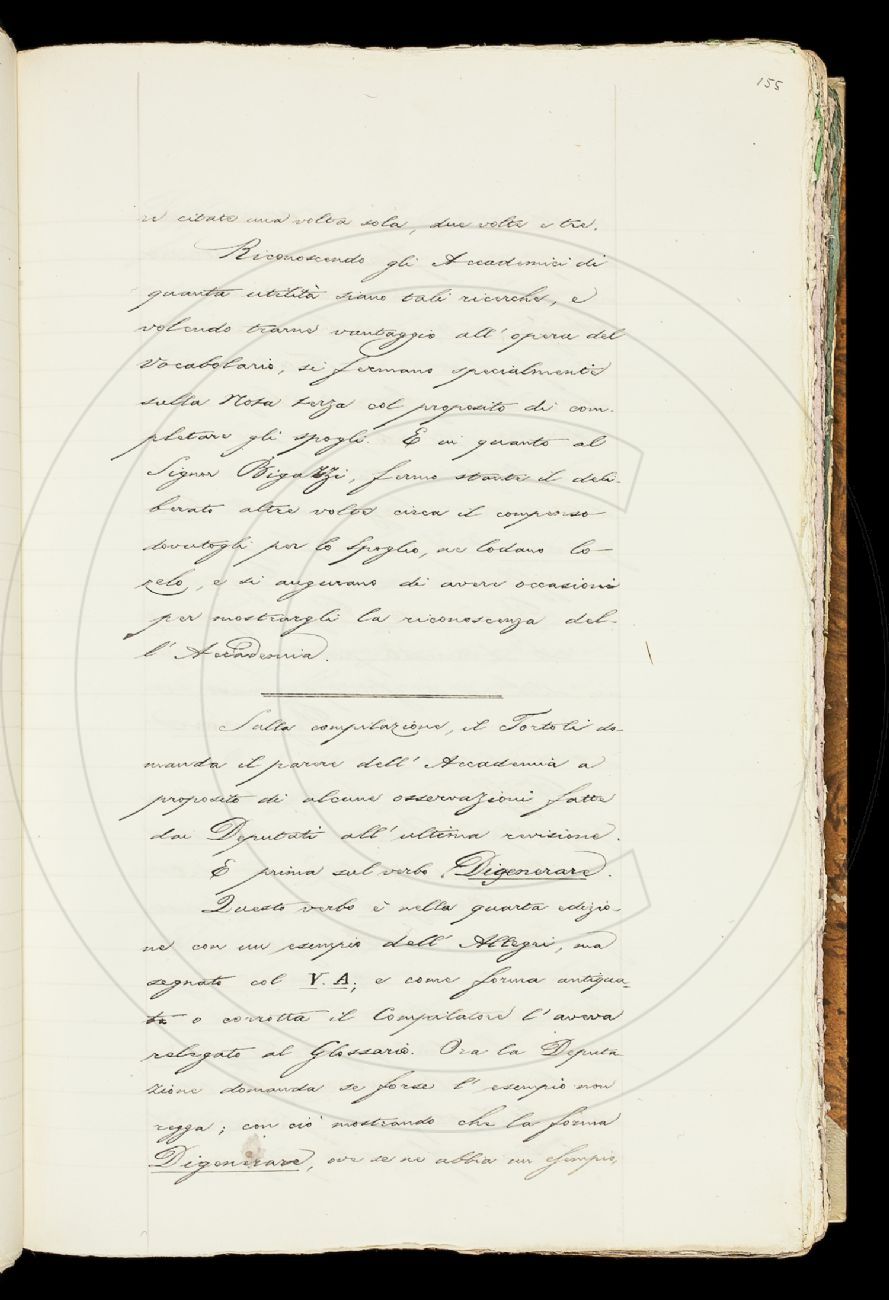 155
re citate una volta sola, due volte e tre.
Riconoscendo gli Accademici di
quanta utilità siano tali ricerche, e
volendo trarne vantaggio all' opera del
Vocabolario, si fermano specialmente
sulla Nota terza col proposito di com-
pletare gli spogli. E in quanto al
Signor Bigazzi, fermo stante il deli-
berato altre volte circa il compenso
dovutogli per lo Spoglio, ne lodano lo
zelo, e si augurano di avere occasioni
per mostrargli la riconoscenza del-
l' Accademia.
Sulla compilazione, il Tortoli do-
manda il parere dell' Accademia a
proposito di alcune osservazioni fatte
dai Deputati all' ultima revisione.
E prima sul verbo Digenerare.
Questo verbo è nella quarta edizio-
ne con un esempio dell' Allegri, ma
segnato col V. A.; e come forma antiqua-
ta o corrotta il Compilatore l' aveva
relegato al Glossario. Ora la Deputa
zione domanda se forse l' esempio non
regga; con ciò mostrando che la forma
Digenerare, ove se ne abbia un esempio,